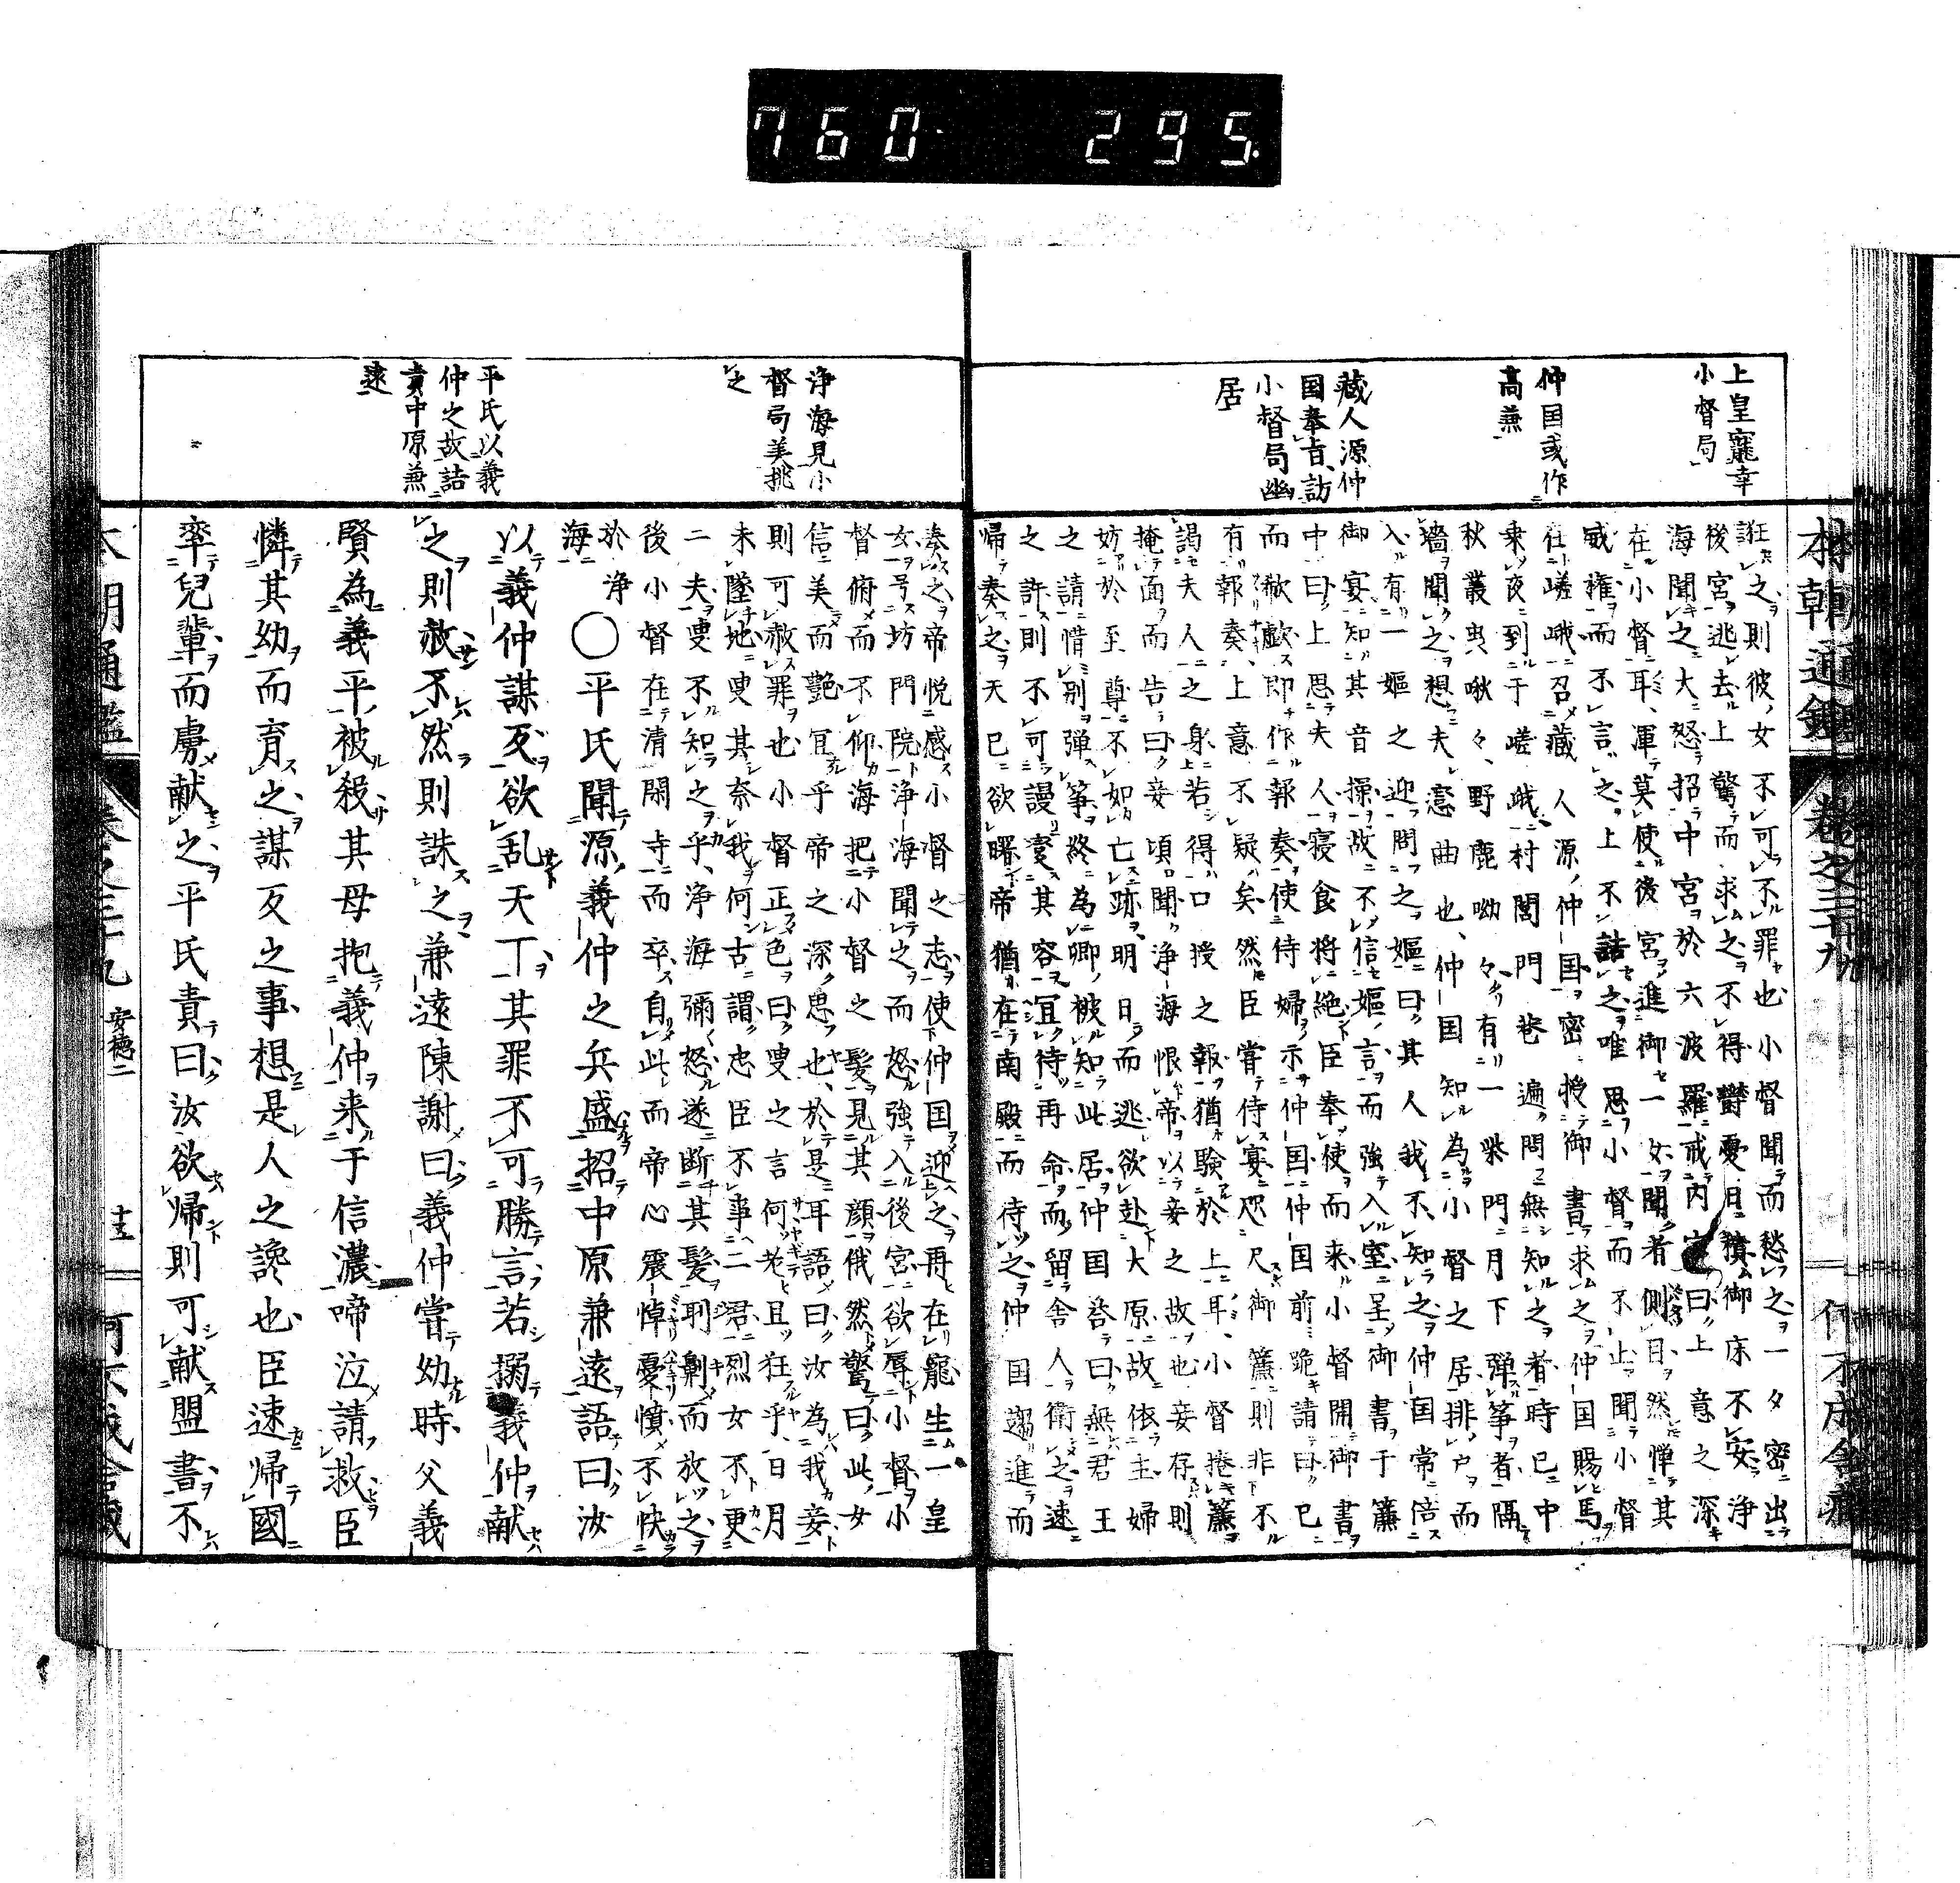 760 295
本朝通鑑
巻之二十九
上皇寵幸
小督局
仲国或作
高兼
蔵人源仲
国奉旨訪
小督局幽
居
誑之則彼女不可不罪也小督聞而愁之一夕密出
後宮逃去上驚而求之不得欝憂日積御床不安浄
海聞之大怒招中宮於六波羅戒内
曰上意之深
在小督耳渾莫使後宮進御一女聞者側目然憚其
威権而不言之上不詰之唯思小督而不止聞小督
在嵯峨召蔵人源仲国密授御書求之仲国賜馬
乗夜到于嵯峨村閭門巷遍問無知之者時已中
秋叢虫啾々野鹿呦々有一柴門月下弾筝者隔
墻聞之想夫恋曲也仲国知為小督之居排戸而
入有一嫗之迎問之嫗曰其人我不知之仲国常陪
御宴知其音操故不信嫗言而強入室呈御書于簾
中曰上思夫人寝食将絶臣奉使而来小督開御書
而歔欷即作報奏使侍婦示仲国仲国前跪請曰已
有報奏上意不疑矣然臣嘗侍宴咫尺御簾則非不
謁夫人之身若得口授之報猶験於上耳小督捲簾
掩面而告曰妾頃聞浄海恨帝以妾之故也妾存則
妨於至尊不如亡跡明日而逃欲赴大原故依主婦
之請惜別弾筝終為卿被知此居仲国咨曰無君王
之許則不可謾変其容宜待再命而留舎人衛之速
帰奏之天已欲曙帝猶在南殿而待之仲国趨進而
浄海見小
督局美挑
之
平氏以義
仲之故詰
責中原兼
遠
奏之帝悦感小督之志使仲国迎之再在寵生一皇
女号坊門院浄海聞之而怒強入後宮欲辱小督小
督俯而不仰海把小督之髪見其顔俄然驚曰此女
信美而艶宜乎帝之深思也於是耳語曰汝為我妾
則可赦罪也小督正色曰叟之言何老且狂乎日月
未墜地叟其奈我何古謂忠臣不事二君烈女不更
二夫叟不知之乎浄海彌怒遂断其髪刵劓而放之
後小督在清閑寺而卒自此而帝心震悼憂憤不快
於浄
海
○平氏聞源義仲之兵盛招中原兼遠語曰汝
以義仲謀反欲乱天下其罪不可勝言若搦義仲献
之則赦不然則誅之兼遠陳謝曰義仲嘗幼時父義
賢為義平被殺其母抱義仲来于信濃啼泣請救臣
憐其幼而育之謀反之事想是人之讒也臣速帰國
率兒輩而虜献之平氏責曰汝欲帰則可献盟書不
本朝通鑑
巻之二十九
安徳二